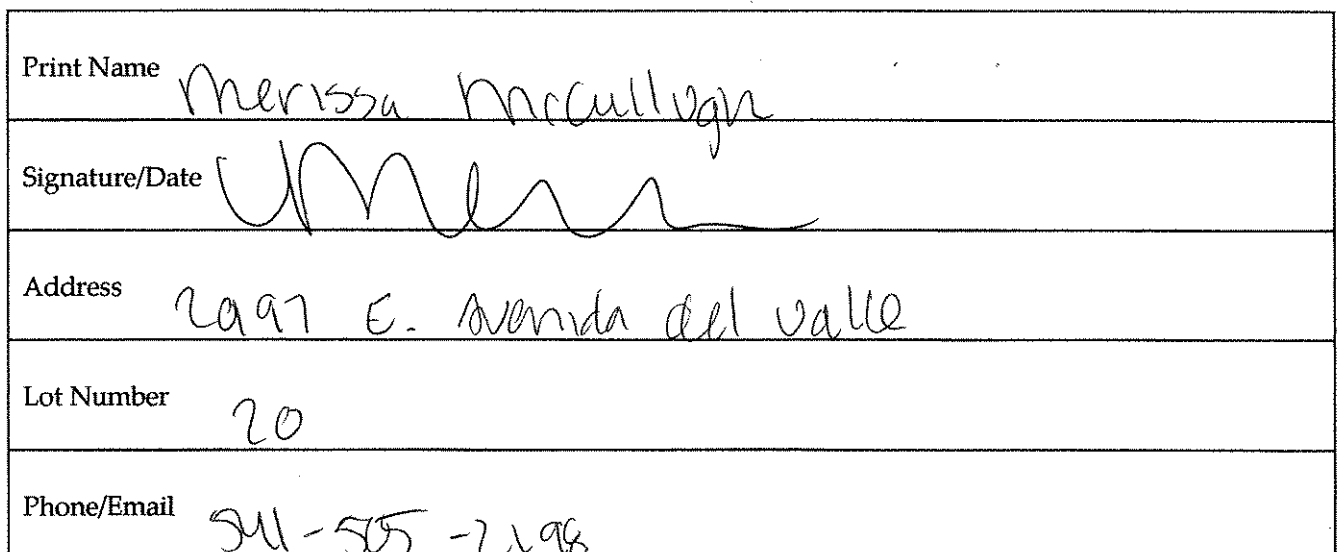 Print Name Merissa McCullugh
Signature/Date
Address 2997 E. Avenida del valle
Lot Number 20
Phone/Email 541-505-2198